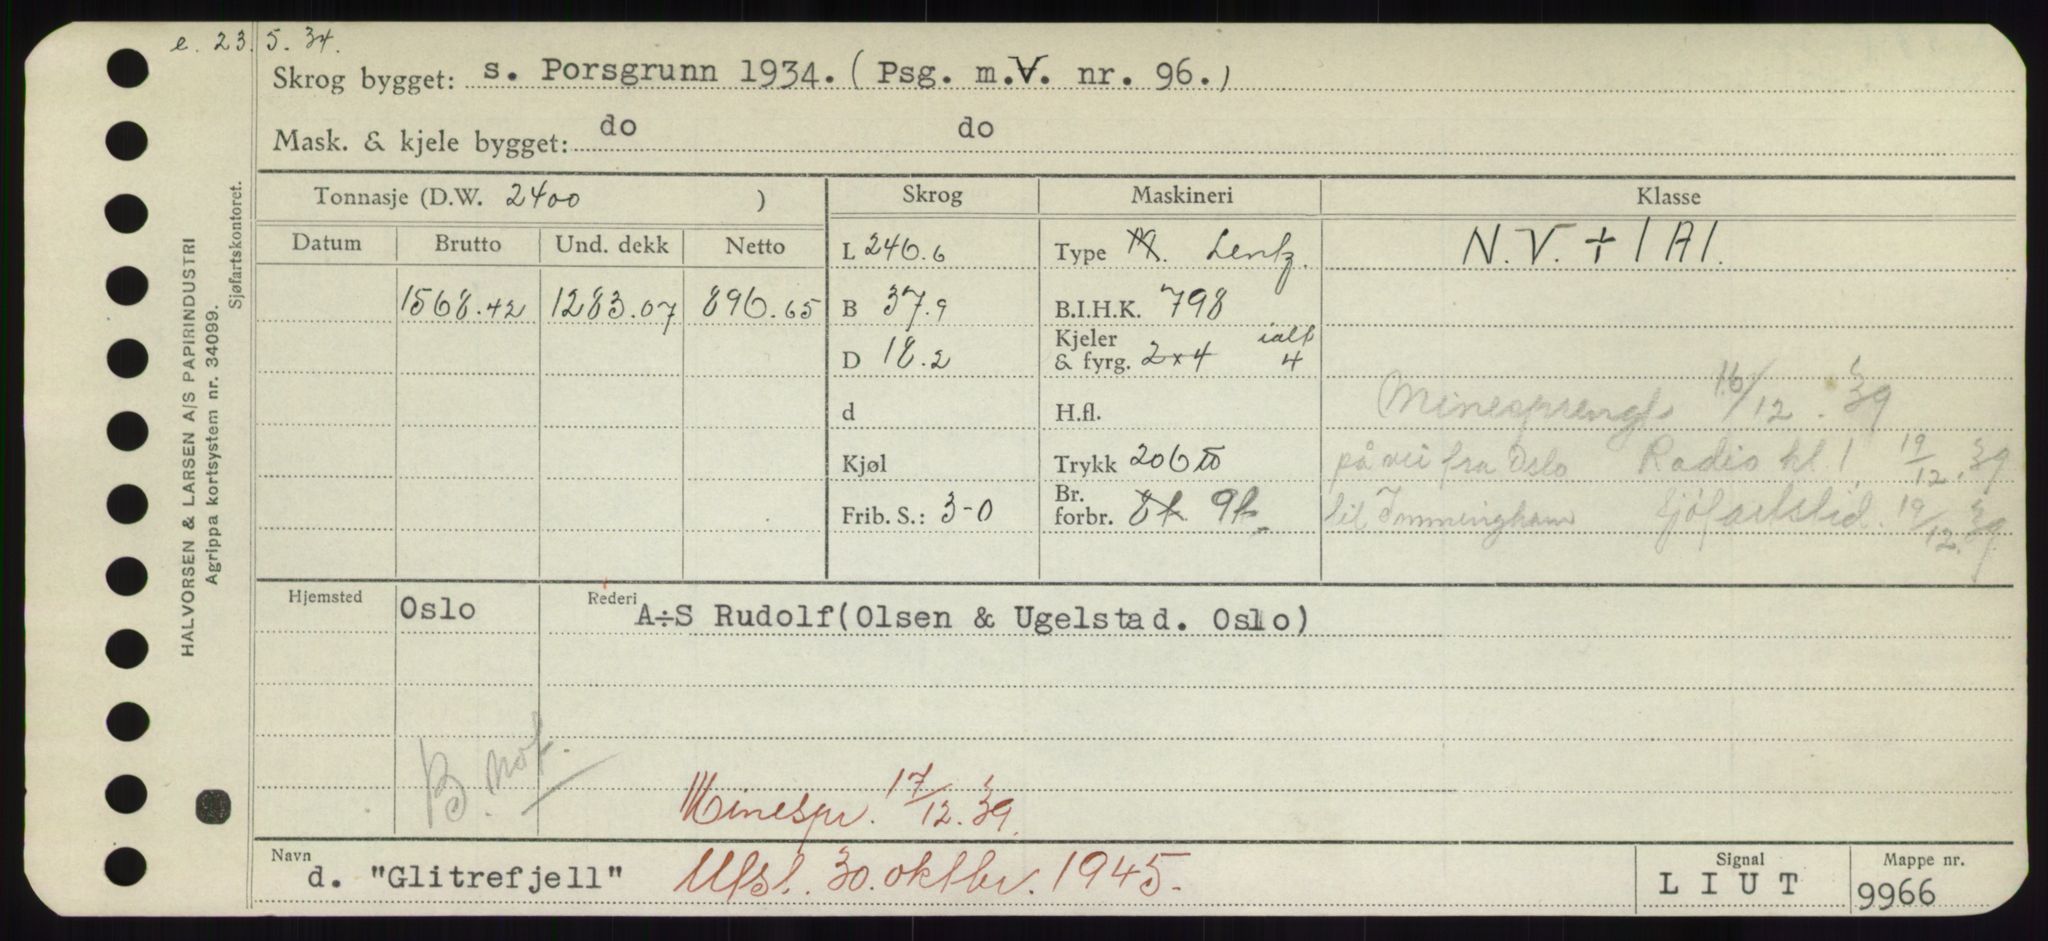 e. 23.5.34.
Skrog bygget: s. Porsgrunn 1934. (Psg. m.V. nr. 96.)
Mask. & kjele bygget: do do
HALVORSEN & LARSEN A/S PAPIRINDUSTRI
Agrippa kortsystem nr. 34099.
Sjøfartskontoret.
Tonnasje (D.W. 2400 ) Skrog Maskineri Klasse
Datum Brutto Und. dekk Netto L 246.6 Type M. Lentz. N.V. + 1 A1.
1568.42 1283.07 896.65 B 37.9 B.I.H.K. 798
D 18.2 Kjeler & fyrg. 2x4 ialt 4
d H.fl. Minesprengt 16/12. 39
Kjøl Trykk 206 på vei fra Oslo Radio kl. 1 19/12. 39
Frib. S.: 3-0 Br. forbr. 8t. 9t. til Immingham Sjöfartstid. 19/12. 39
Hjemsted Oslo Rederi A÷S Rudolf (Olsen & Ugelstad. Oslo)
B. not.
Minespr. 17/12. 39.
Navn d. "Glitrefjell" Utsl. 30. oktbr. 1945. Signal L I U T Mappe nr. 9966